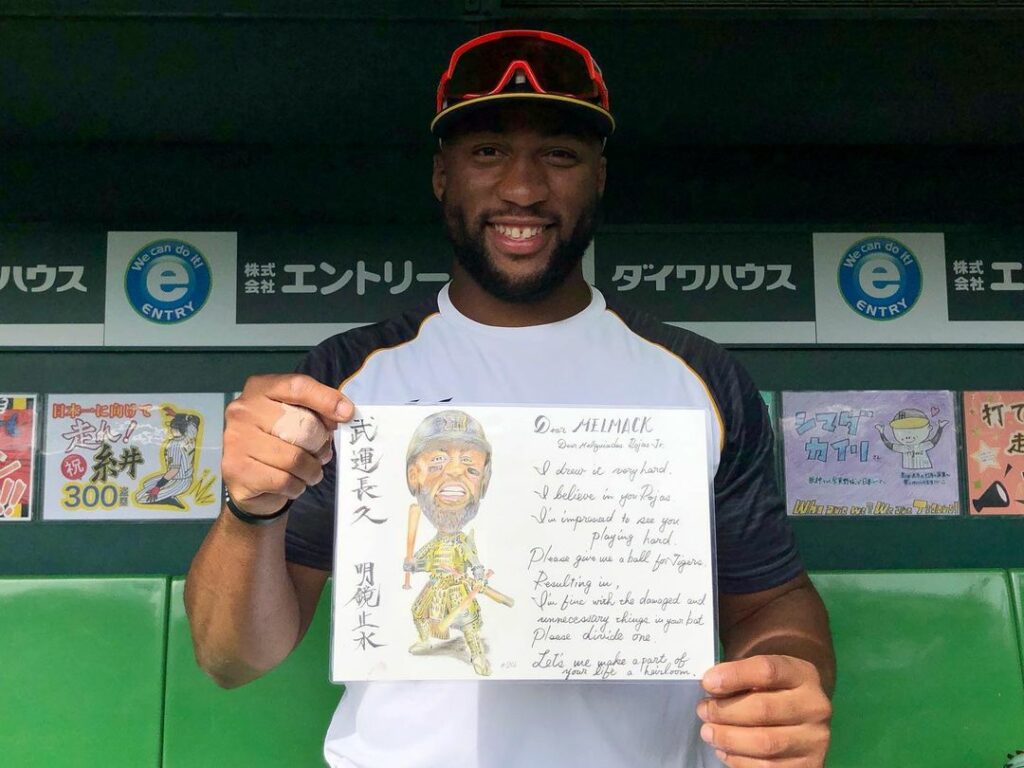 ハウス
We can do it!
e
ENTRY
株式会社
エントリー
ダイワハウス
We can do it!
e
ENTRY
株式会社
エ
日本一に向けて
走れ!
祝
糸井
300
武運長久
明鏡止水
Dear MELMACK
Dear Melquiades Rojas Jr.
I drew it very hard.
I believe in you Rojas.
I'm impressed to see you
playing hard.
Please give me a ball for Tigers.
Resulting in,
I'm fine with the damaged and
unnecessary things in your bat
Please divide one
Let's me make a part of
your life a heirloom.
シマダ
カイリ
Who are we? We are Tigers!
打て